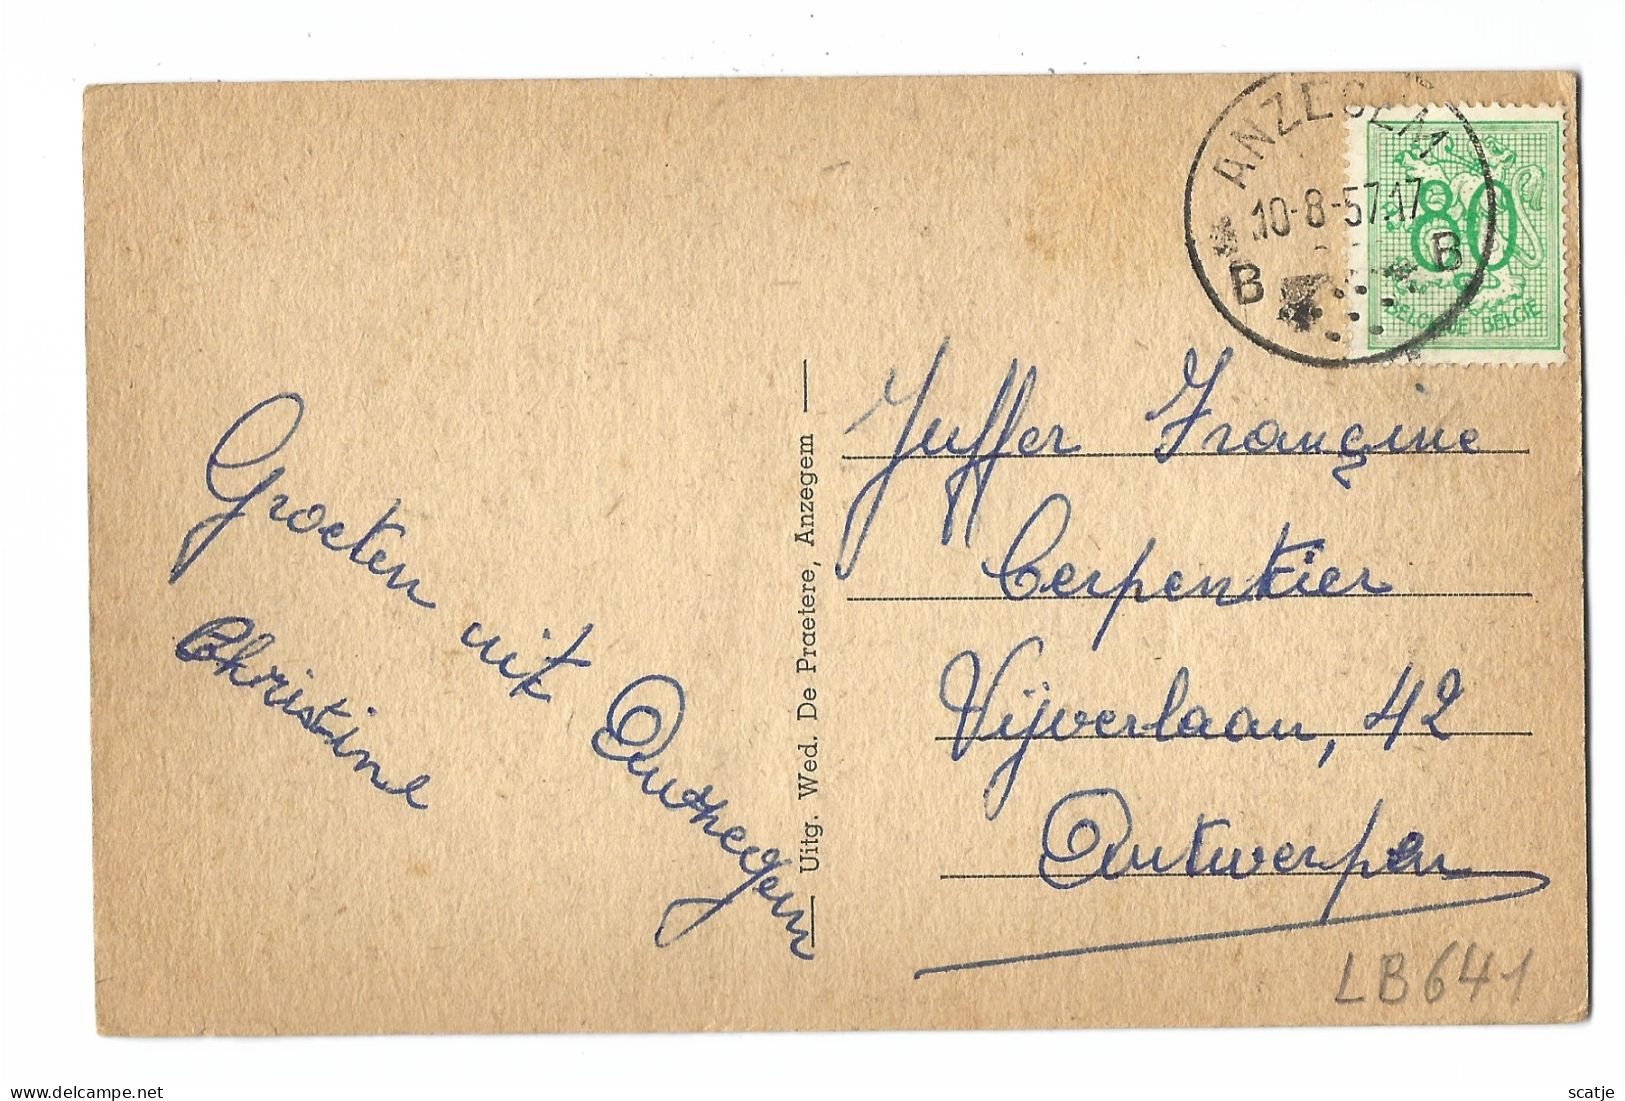 ANZEGEM
10-8-57.17
B B
80
BELGIQUE BELGIË
Groeten uit Anzegem
Christine
Uitg. Wed. De Praetere, Anzegem
Juffer Françine
Cerpentier
Vijverlaan, 42
Antwerpen
LB641
scatje